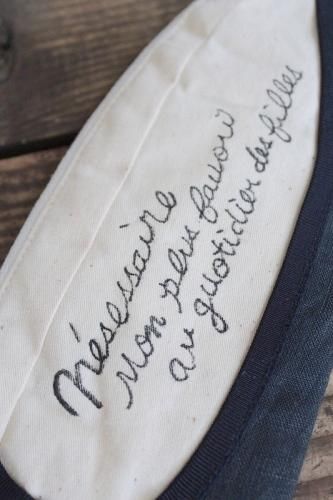 Nésessaire
Mon plus favori
au quotidier des filles